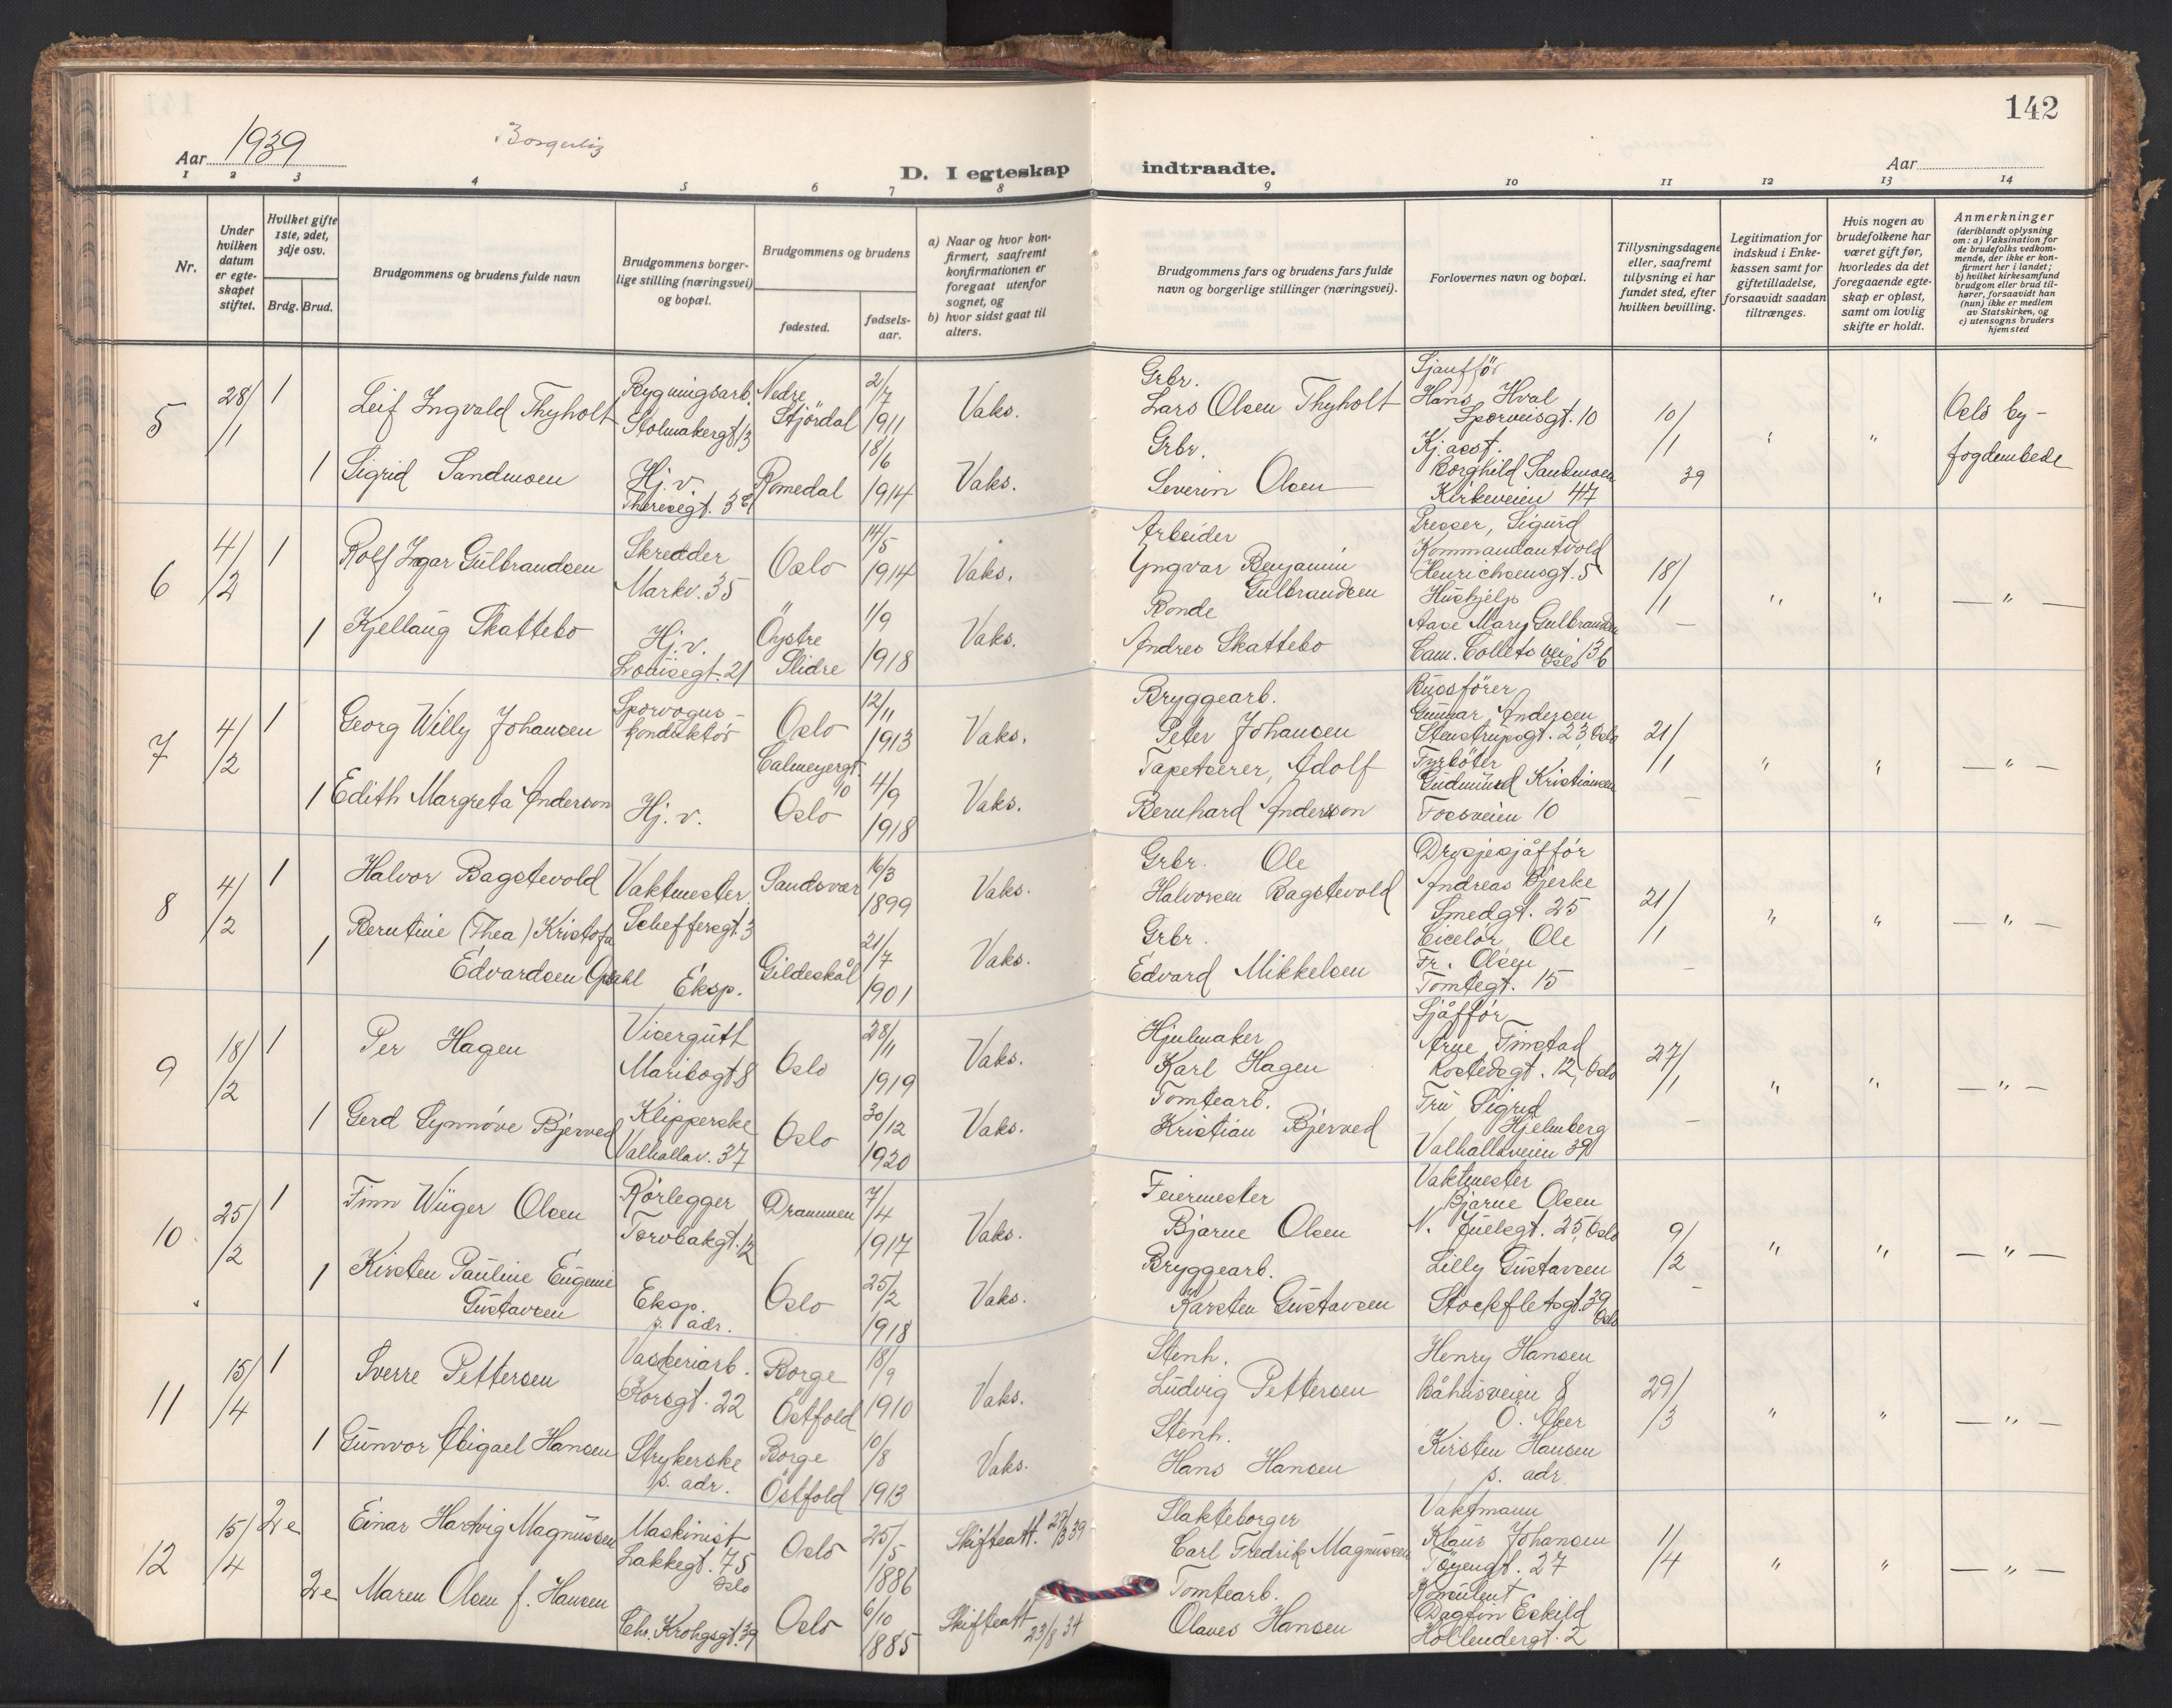 142
Aar 1939
D. I egteskap indtraadte.
Aar
1 2 3 4 5 6 7 8 9 10 11 12 13 14
Nr.
Under hvilken datum er egte-skapet stiftet.
Hvilket gifte 1ste, 2det, 3dje osv.
Brdg. Brud.
Brudgommens og brudens fulde navn
Brudgommens borger-lige stilling (næringsvei) og bopæl.
Brudgommens og brudens
fødested.
fødsels-aar.
a) Naar og hvor kon-firmert, saafremt konfirmationen er foregaat utenfor sognet, og
b) hvor sidst gaat til alters.
Brudgommens fars og brudens fars fulde navn og borgerlige stillinger (næringsvei).
Forlovernes navn og bopæl.
Tillysningsdagene eller, saafremt tillysning ei har fundet sted, efter hvilken bevilling.
Legitimation for indskud i Enke-kassen samt for giftetilladelse, forsaavidt saadan tiltrænges.
Hvis nogen av brudefolkene har været gift før, hvorledes da det foregaaende egte-skap er opløst, samt om lovlig skifte er holdt.
Anmerkninger (deriblandt oplysning om: a) Vaksination for de brudefolks vedkom-mende, der ikke er kon-firmert her i landet; b) hvilket kirkesamfund brudgom eller brud til-hører, forsaavidt han (hun) ikke er medlem av Statskirken, og c) utensogns bruders hjemsted
5 28/1 1 Leif Ingvald Thyholt Bygningsarb. Stolmakergt 13 Nedre Stjördal 2/7 1911 Vaks. Grbr. Lars Olsen Thyholt Sjauffør Hans Hval Sporveisgt. 10 10/1 39 " " Oslo by-fogdembede
1 Sigrid Sandmoen Hj. v. Theresegt. 38 Romedal 18/6 1914 Vaks. Grbr. Severin Olsen Kj. asst. Borghild Sandmoen Kirkeveien 47
6 4/2 1 Rolf Ingar Gulbrandsen Skredder Markv. 35 Oslo 14/5 1914 Vaks. Arbeider Yngvar Benjamin Gulbrandsen Presser, Sigurd Kommandantvold Henrichsensgt. 5 18/1 " " — " —
1 Kjellaug Skattebo Hj. v. Louisegt. 21 Öystre Slidre 1/9 1918 Vaks. Bonde Andres Skattebo Hushjelp Aase Mary Gulbrandsen Cam. Colletts vei 13b Oslo
7 4/2 1 Georg Willy Johansen Sporvogns-konduktør Calmeyergt. 10 Oslo 12/11 1913 Vaks. Bryggearb. Peter Johansen Bussfører Gunnar Andersen Stenstrupsgt. 23, Oslo 21/1 " " — " —
1 Edith Margreta Anderson Hj. v. Oslo 4/9 1918 Vaks. Tapetserer, Adolf Bernhard Andersson Fyrböter Gudmund Kristiansen Fossveien 10
8 4/2 1 Halvor Bagstevold Vaktmester Scheffersgt. 3 Sandsvær 16/3 1899 Vaks. Grbr. Ole Halvorsen Bagstevold Drosjesjåffør Andreas Bjerke Smedgt. 25 21/1 " " — " —
1 Berntine (Thea) Kristofa Edvardsen Opdahl Eksp. Gildeskål 21/7 1901 Vaks. Grbr. Edvard Mikkelsen Ciselør Ole Fr. Olsen Tomtegt. 15
9 18/2 1 Per Hagen Visergutt Maribogt 8 Oslo 28/11 1919 Vaks. Hjulmaker Karl Hagen Sjåffør Arne Timstad Rostedsgt. 12, Oslo 27/1 " " — " —
1 Gerd Synnöve Bjerved Klipperske Valhallav. 37 Oslo 30/12 1920 Vaks. Tomtearb. Kristian Bjerved Fru Sigrid Hjelmberg Valhallaveien 39
10 25/2 1 Finn Wiiger Olsen Rörlegger Torvbakgt. 12 Drammen 7/4 1917 Vaks. Feiermester Bjarne Olsen Vaktmester Bjarne Olsen N. Juelsgt. 25, Oslo 9/2 " " — " —
1 Kirsten Pauline Eugenie Gustavsen Eksp. s. adr. Oslo 25/2 1918 Vaks. Bryggearb. Karsten Gustavsen Lilly Gustavsen Stockfletsgt. 39 Oslo
11 15/4 1 Sverre Pettersen Vaskeriarb. Korsgt. 22 Borge Östfold 18/9 1910 Vaks. Stenh. Ludvig Pettersen Henry Hansen Båhusveien 8 Ö. Aker 29/3 " " — " —
1 Gunvor Abigael Hansen Strykerske s. adr. Borge Östfold 10/8 1913 Vaks. Stenh. Hans Hansen Kirsten Hansen s. adr.
12 15/4 2e Einar Hartvig Magnussen Maskinist Lakkegt. 75 Oslo Oslo 25/5 1886 Skifteatt. 27/3 39 Slakteborger Carl Fredrik Magnussen Vaktmann Klaus Johansen Töyengt. 27 1/4 " " — " —
2e Maren Olsen f. Hansen Chr. Krohgsgt. 39 Oslo 6/10 1885 Skifteatt 23/8 34 Tomtearb. Olaves Hansen Konsulent Dagfin Eskild Hollendergt. 2